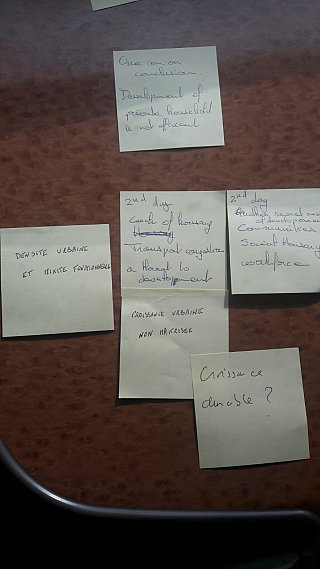 One can on
conclusion.
Development of
private household
is not efficient
2nd day
Lack of housing
Transport congestion
a threat to
development
2nd day
of development
Communities
Social Housing
workforce
DENSITÉ URBAINE
ET MIXITÉ FONCTIONNELLE
CROISSANCE URBAINE
NON MAITRISÉE
Croissance
durable ?